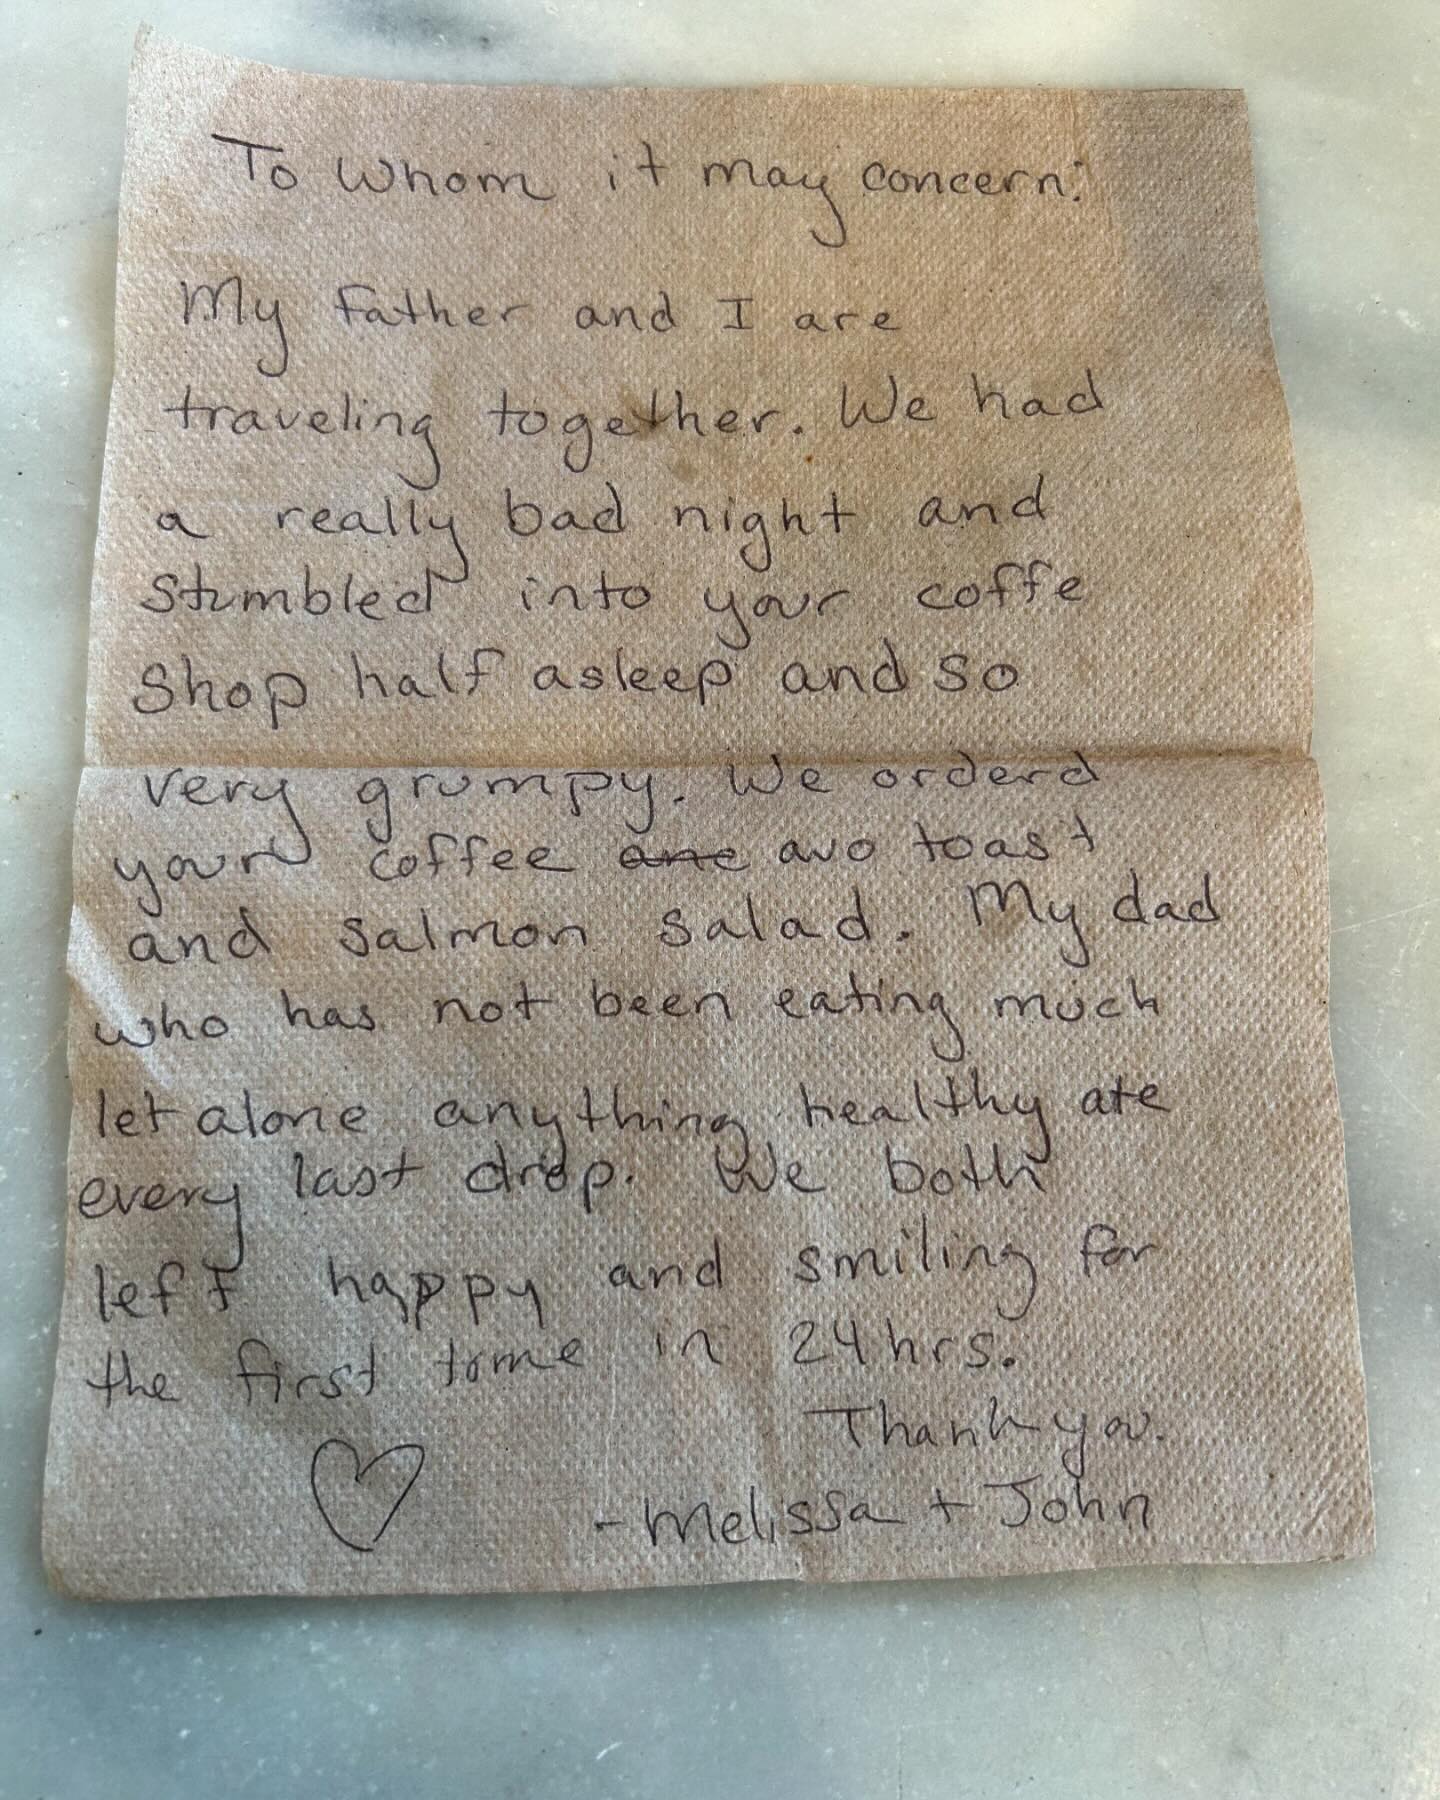 To whom it may concern:
My father and I are
traveling together. We had
a really bad night and
stumbled into your coffe
shop half asleep and so
very grumpy. We orderd
your coffee ane avo toast
and salmon salad. My dad
who has not been eating much
let alone anything healthy ate
every last drop. We both
left happy and smiling for
the first time in 24hrs.
Thank you.
- Melissa + John